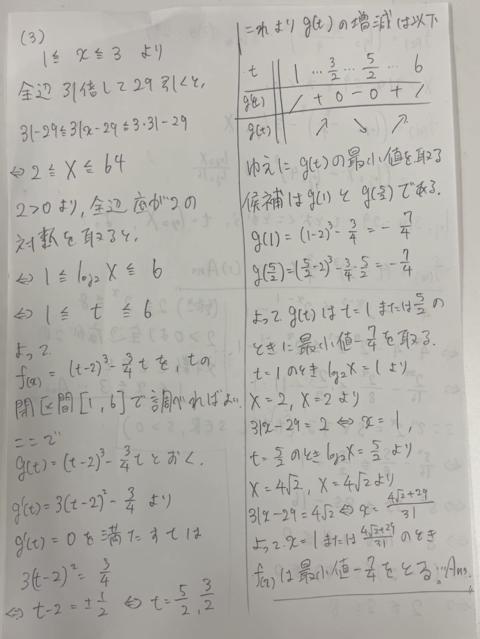 (3)
1 ≦ x ≦ 3 より
全辺 31倍して29引くと、
31-29≦31x-29≦3・31-29
⇔ 2 ≦ X ≦ 64
2>0より、全辺 底が2の
対数を取ると、
⇔ 1 ≦ log₂X ≦ 6
⇔ 1 ≦ t ≦ 6
よって
f(x) = (t-2)³ - 3/4 t を、tの
閉区間[1, 6]で調べればよい
ここで
g(t) = (t-2)³ - 3/4 t とおく.
g'(t) = 3(t-2)² - 3/4 より
g'(t) = 0 を満たすtは
3(t-2)² = 3/4
⇔ t-2 = ±1/2 ⇔ t = 5/2, 3/2
これより g(t) の増減は以下
t 1 … 3/2 … 5/2 … 6
g'(t) / + 0 - 0 + /
g(t) ↗ ↘ ↗
ゆえに、g(t)の最小値を取る
候補は g(1) と g(5/2) である.
g(1) = (1-2)³ - 3/4 = - 7/4
g(5/2) = (5/2-2)³ - 3/4・5/2 = - 7/4
よって g(t) は t = 1 または 5/2 の
ときに最小値 - 7/4 を取る.
t = 1 のとき log₂X = 1 より
X = 2, X = 2 より
31x-29 = 2 ⇔ x = 1,
t = 5/2 のとき log₂X = 5/2 より
X = 4√2, X = 4√2 より
31x-29 = 4√2 ⇔ x = (4√2+29)/31
よって x = 1 または (4√2+29)/31 のとき
f(x) は最小値 - 7/4 をとる … Ans.